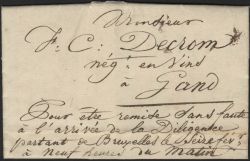 Monsieur
F: C: Decrom
nég.t en vins
à
Gand
Pour être remise sans faute
à l'arrivée de la Diligence
partant de Bruxelles à
à neuf heures du Matin